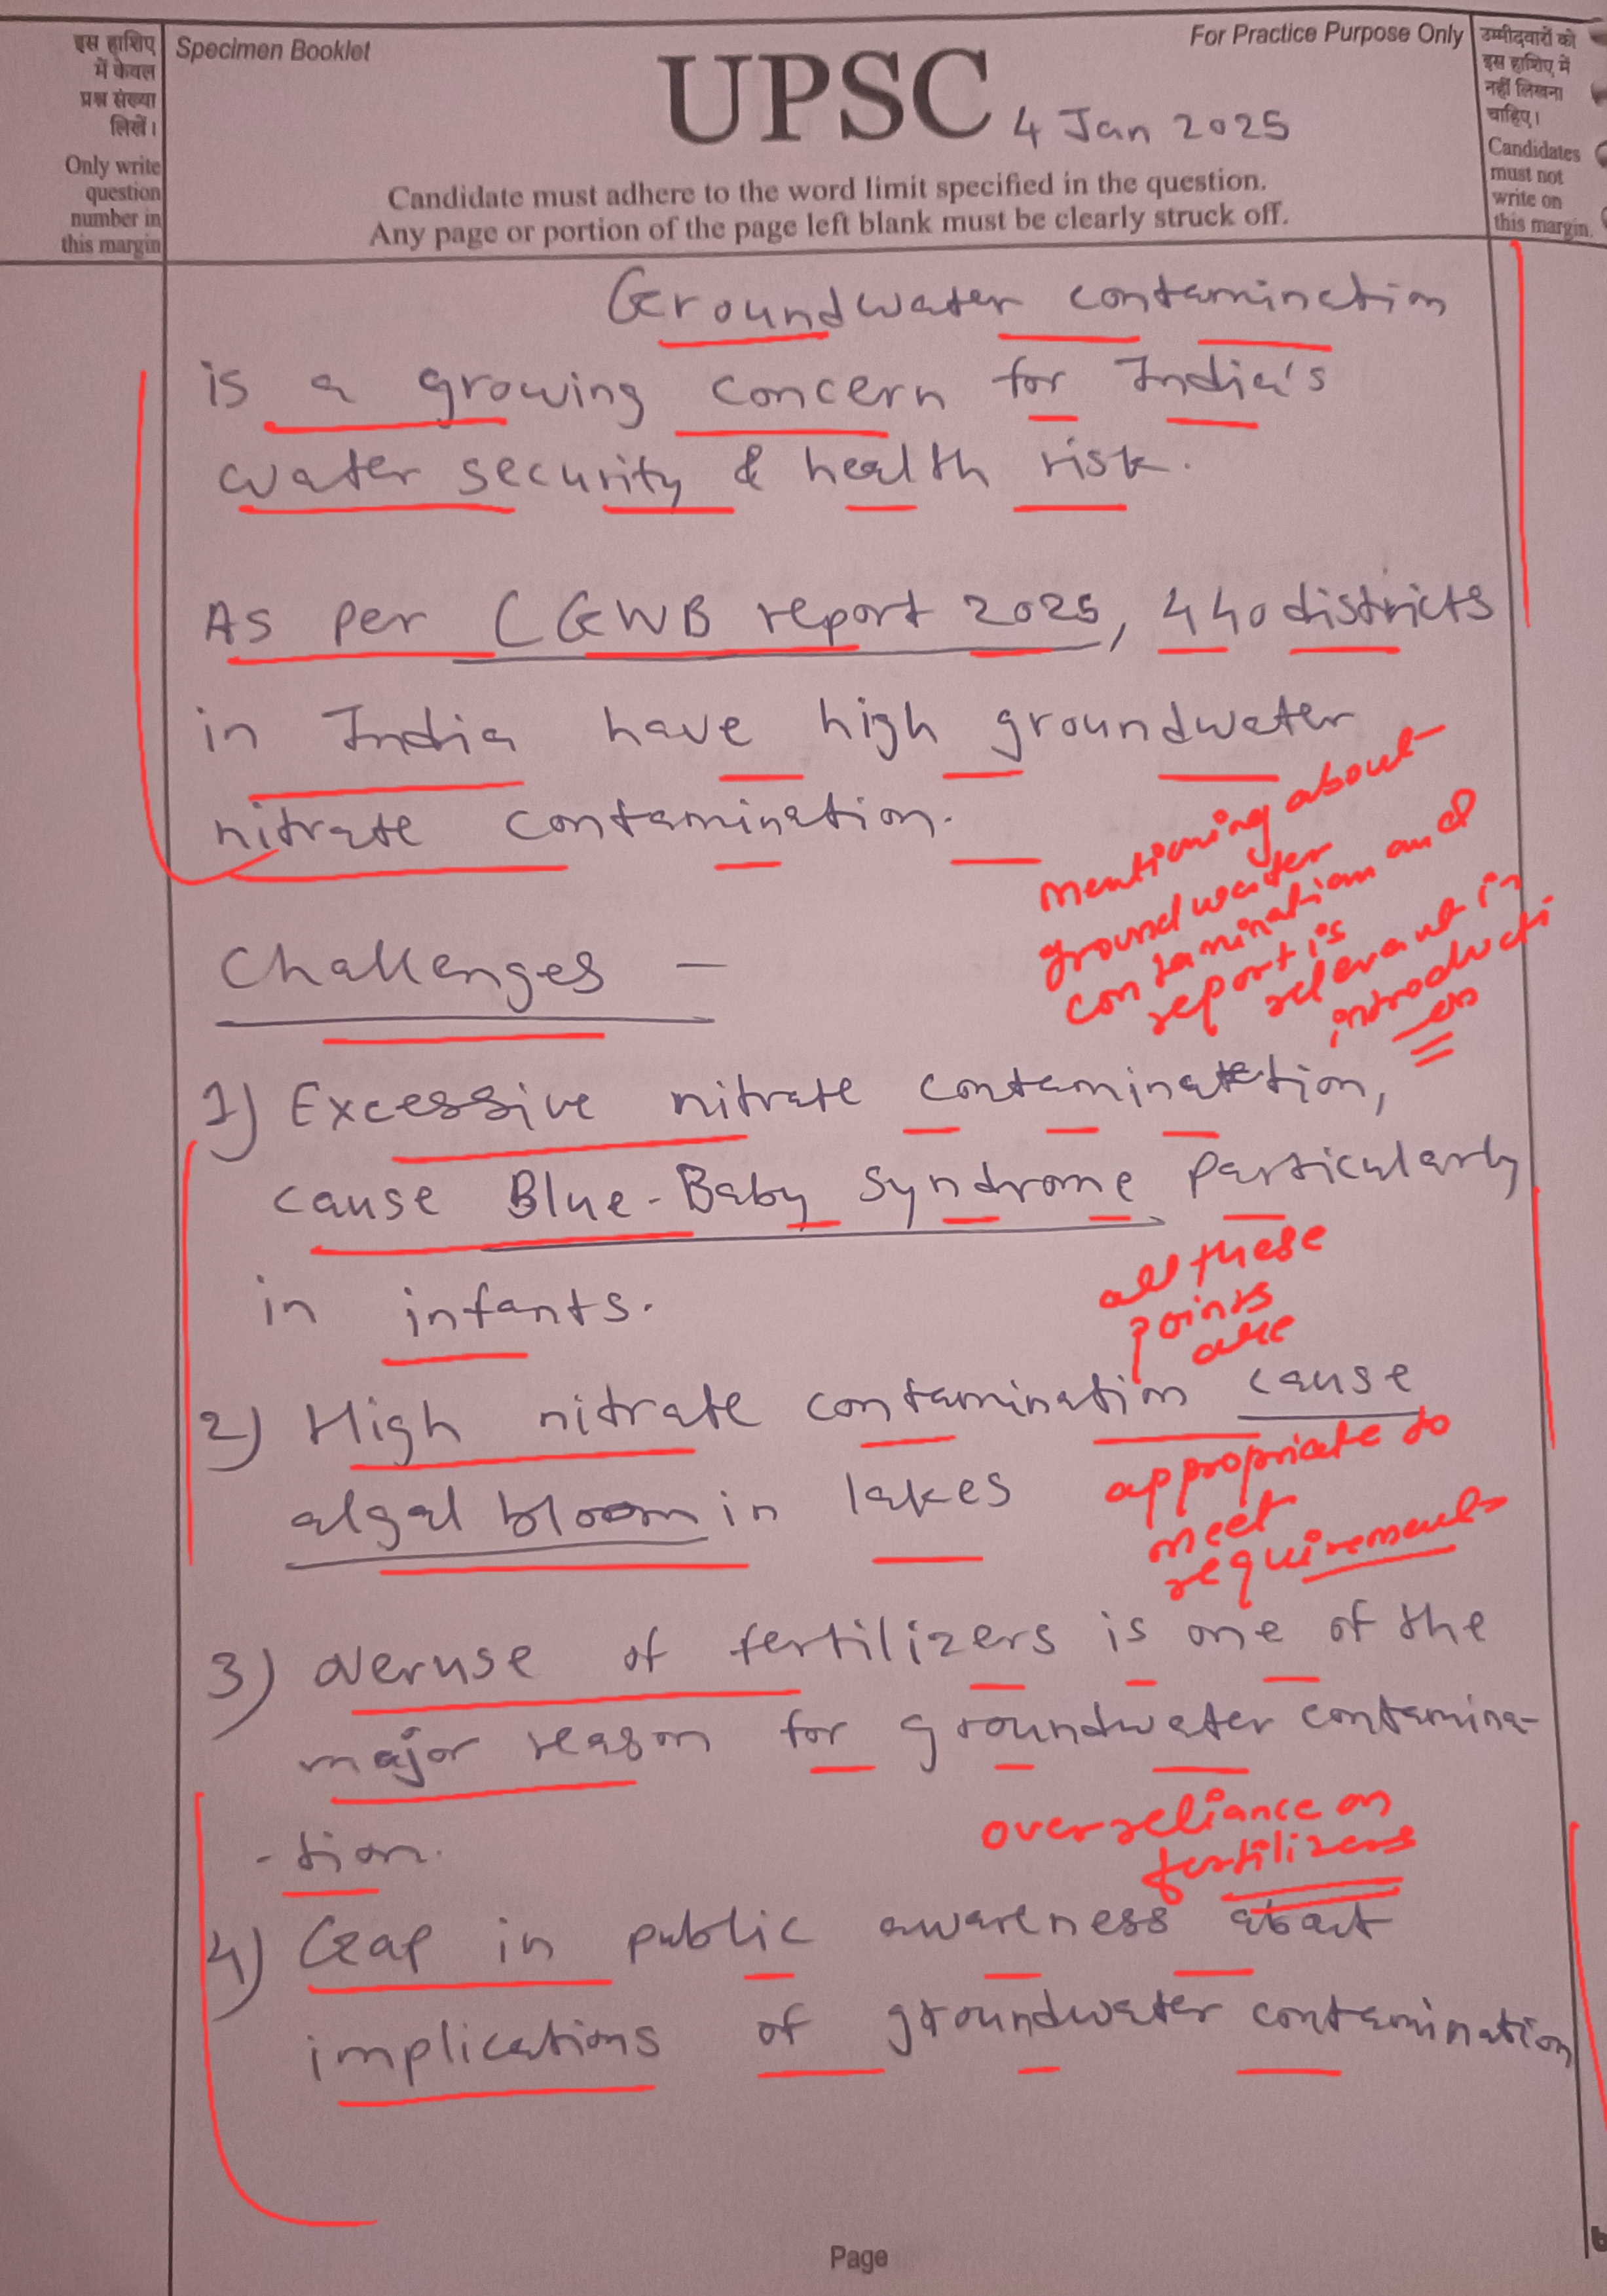 इस हाशिए
में केवल
प्रश्न संख्या
लिखें।
Only write
question
number in
this margin
Specimen Booklet
For Practice Purpose Only
UPSC
4 Jan 2025
Candidate must adhere to the word limit specified in the question.
Any page or portion of the page left blank must be clearly struck off.
उम्मीदवारों को
इस हाशिए में
नहीं लिखना
चाहिए।
Candidates
must not
write on
this margin.
Groundwater contamination
is a growing concern for India's
water security & health risk.
As per CGWB report 2025, 440 districts
in India have high groundwater
nitrate contamination.
mentioning about
ground water
contamination and
report is
relevant in
introducti
on
Challenges -
1) Excessive nitrate contamination,
cause Blue-Baby Syndrome particularly
in infants.
all these
points
are
2) High nitrate contamination cause
algal bloom in lakes
appropriate to
meet
requirements
3) overuse of fertilizers is one of the
major reason for groundwater contamina-
-tion.
over reliance on
fertilizers
4) Gap in public awareness about
implications of groundwater contamination
Page